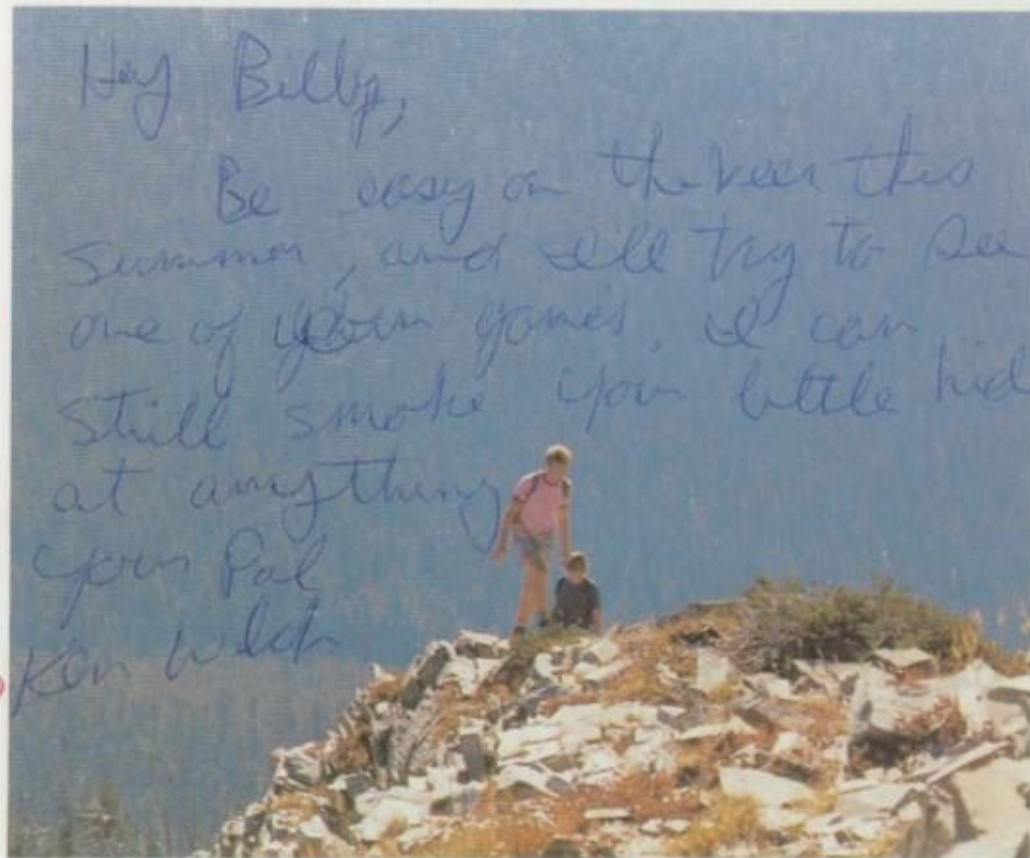 Hey Billy,
Be easy on the beer this
summer, and I'll try to see
one of your games. I can
still smoke your little hid
at anything
your Pal
Ken Welch